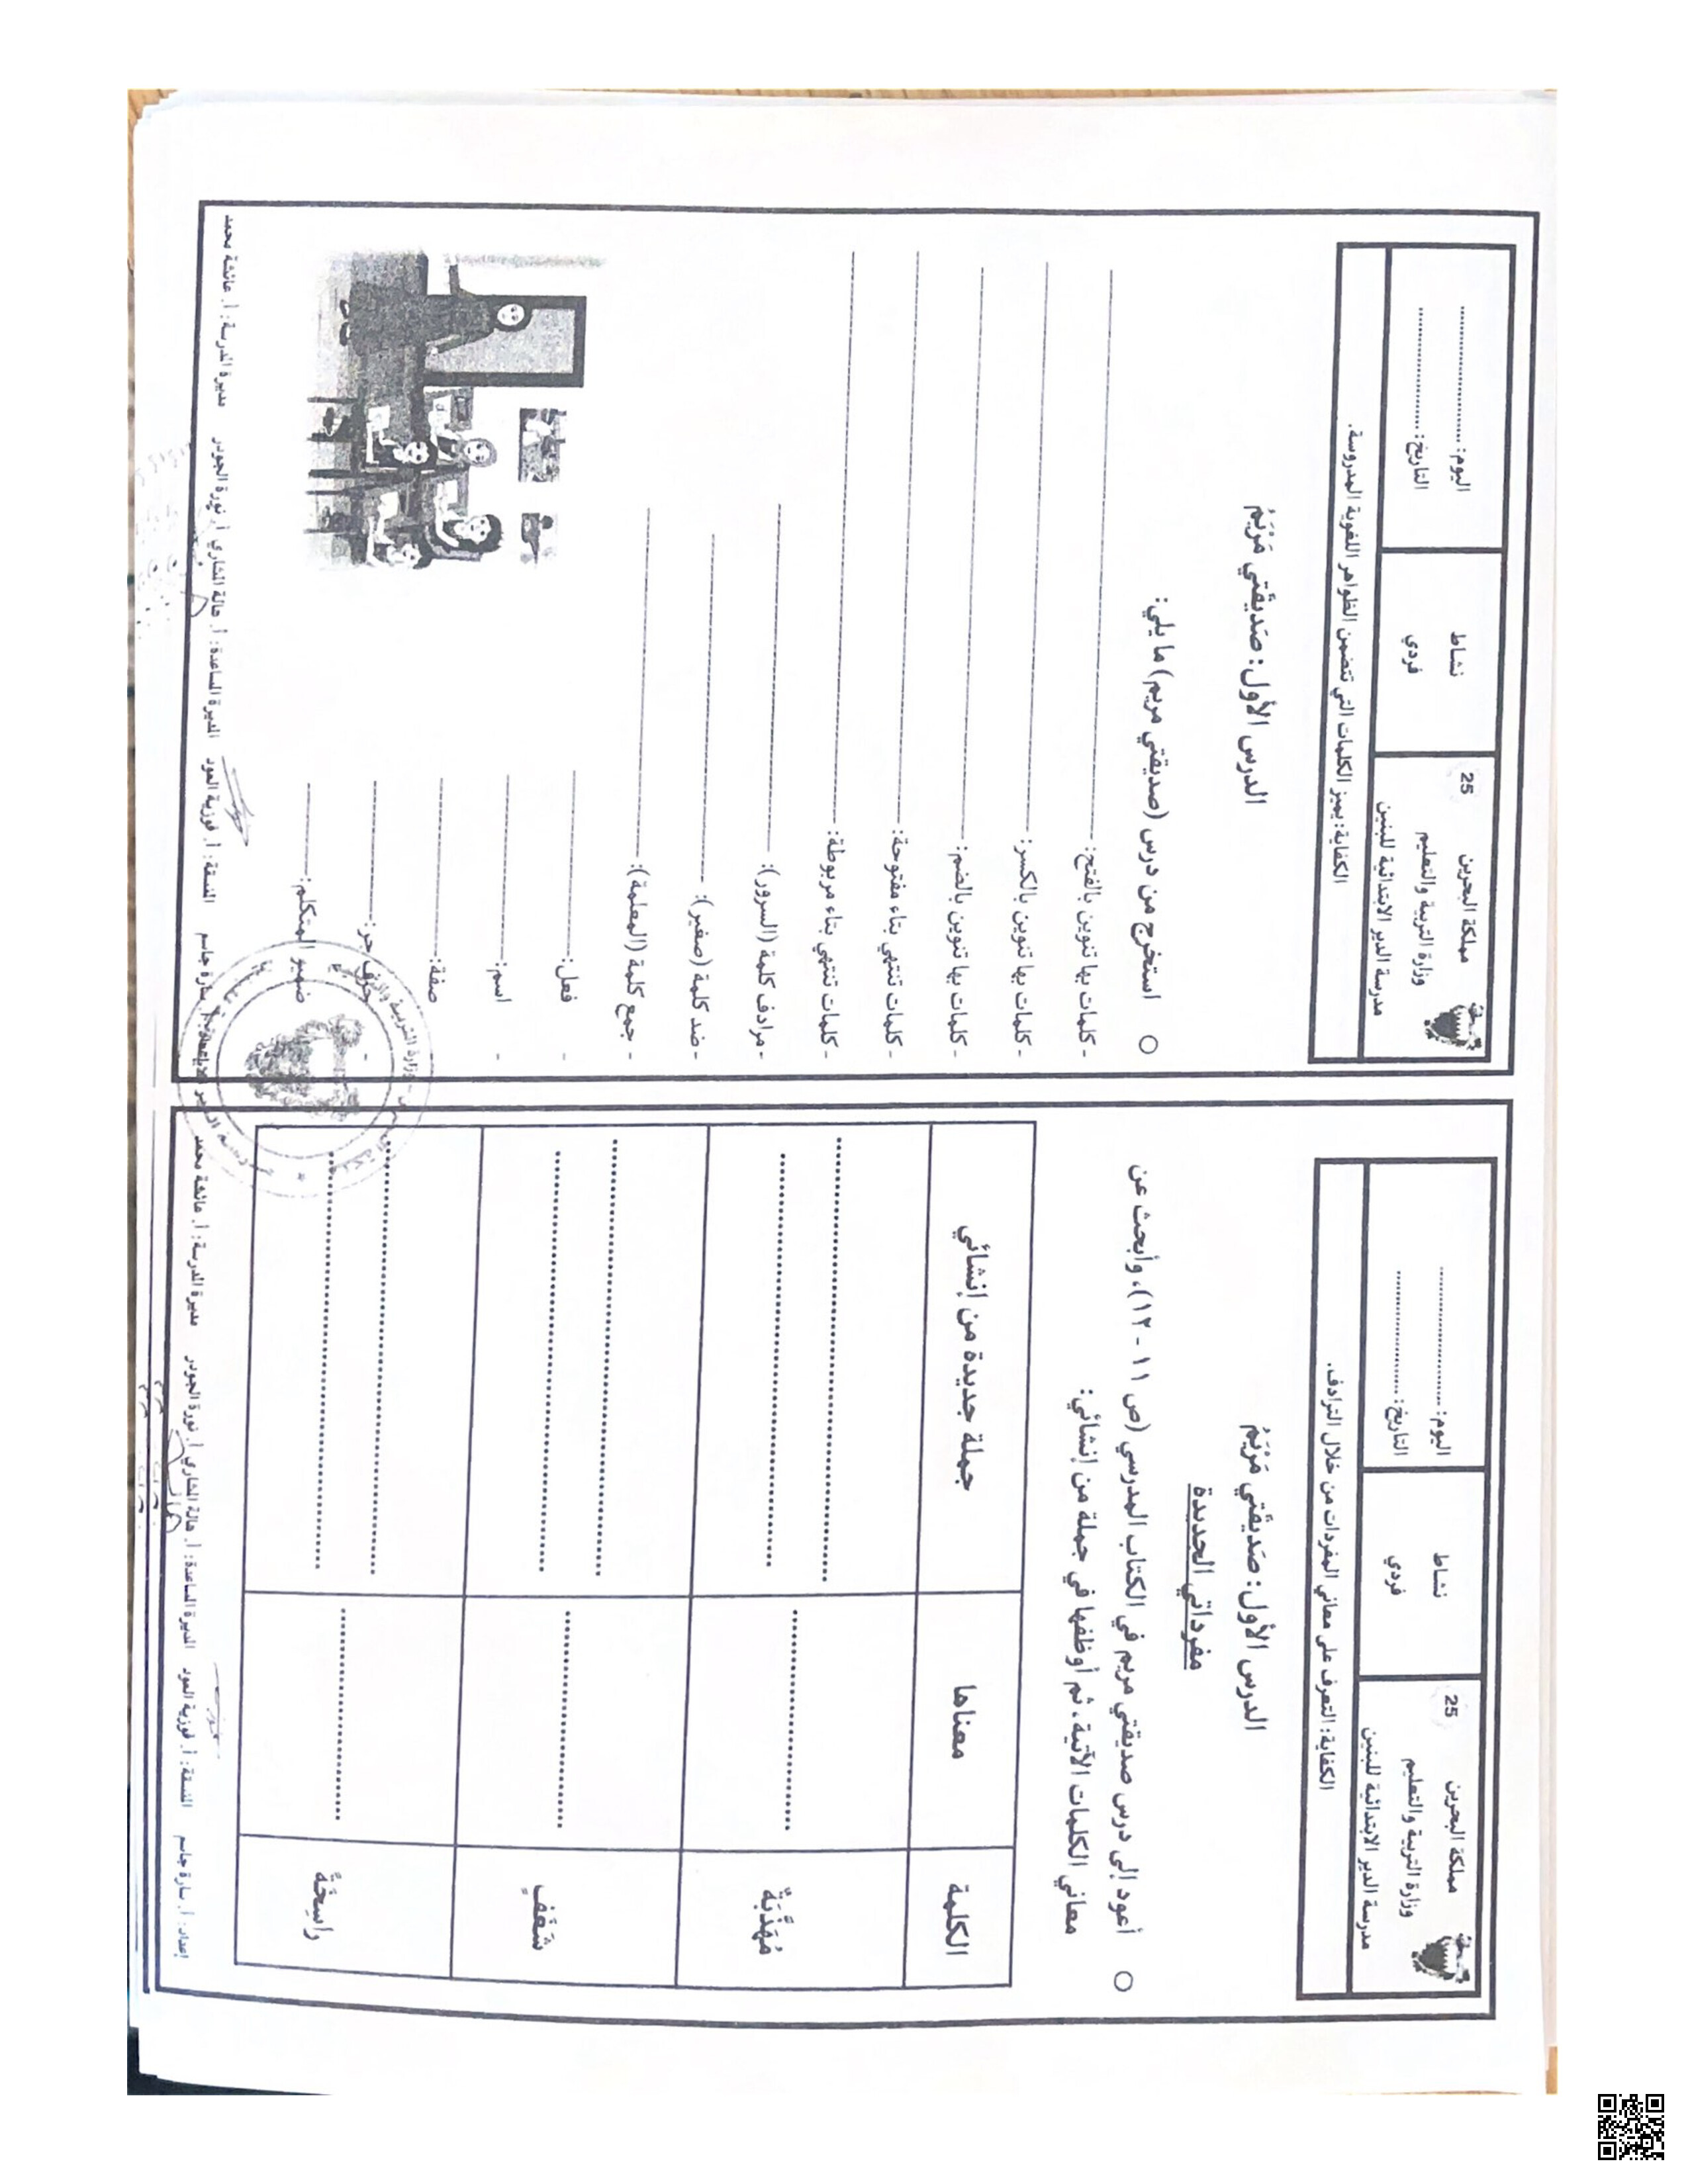 مملكة البحرين
25
وزارة التربية والتعليم
مدرسة الدير الابتدائية للبنين
نشاط
فردي
اليوم: ........................
التاريخ: ........................
الكفاية: التعرف على معاني المفردات من خلال الترادف.
الدرس الأول: صَديقَتي مَرْيَمُ
مفرداتي الجديدة
○ أعود إلى درس صديقتي مريم في الكتاب المدرسي (ص ١١ - ١٢)، وأبحث عن
معاني الكلمات الآتية، ثم أوظفها في جملة من إنشائي:
الكلمة
معناها
جملة جديدة من إنشائي
مُهَذَّبَةٌ
شَغَفٍ
راسِخَةٌ
إعداد: أ. سارة جاسم
المنسقة: أ. فوزية العود
المديرة المساعدة: أ. هالة المشاري أ. نورة الجودر
مديرة المدرسة: أ. عائشة محمد
مملكة البحرين
25
وزارة التربية والتعليم
مدرسة الدير الابتدائية للبنين
نشاط
فردي
اليوم: ........................
التاريخ: ........................
الكفاية: يميز الكلمات التي تتضمن الظواهر اللغوية المدروسة.
الدرس الأول: صَديقَتي مَرْيَمُ
○ استخرج من درس (صديقتي مريم) ما يلي:
- كلمات بها تنوين بالفتح:
- كلمات بها تنوين بالكسر:
- كلمات بها تنوين بالضم:
- كلمات تنتهي بتاء مفتوحة:
- كلمات تنتهي بتاء مربوطة:
- مرادف كلمة (السرور):
- ضد كلمة (صغير):
- جمع كلمة (المعلمة):
- فعل:
- اسم:
- صفة:
- حرف جر:
ضمير المتكلم:
سارة جاسم
المنسقة: أ. فوزية العود
المديرة المساعدة: أ. هالة المشاري أ. نورة الجودر
مديرة المدرسة: أ. عائشة محمد